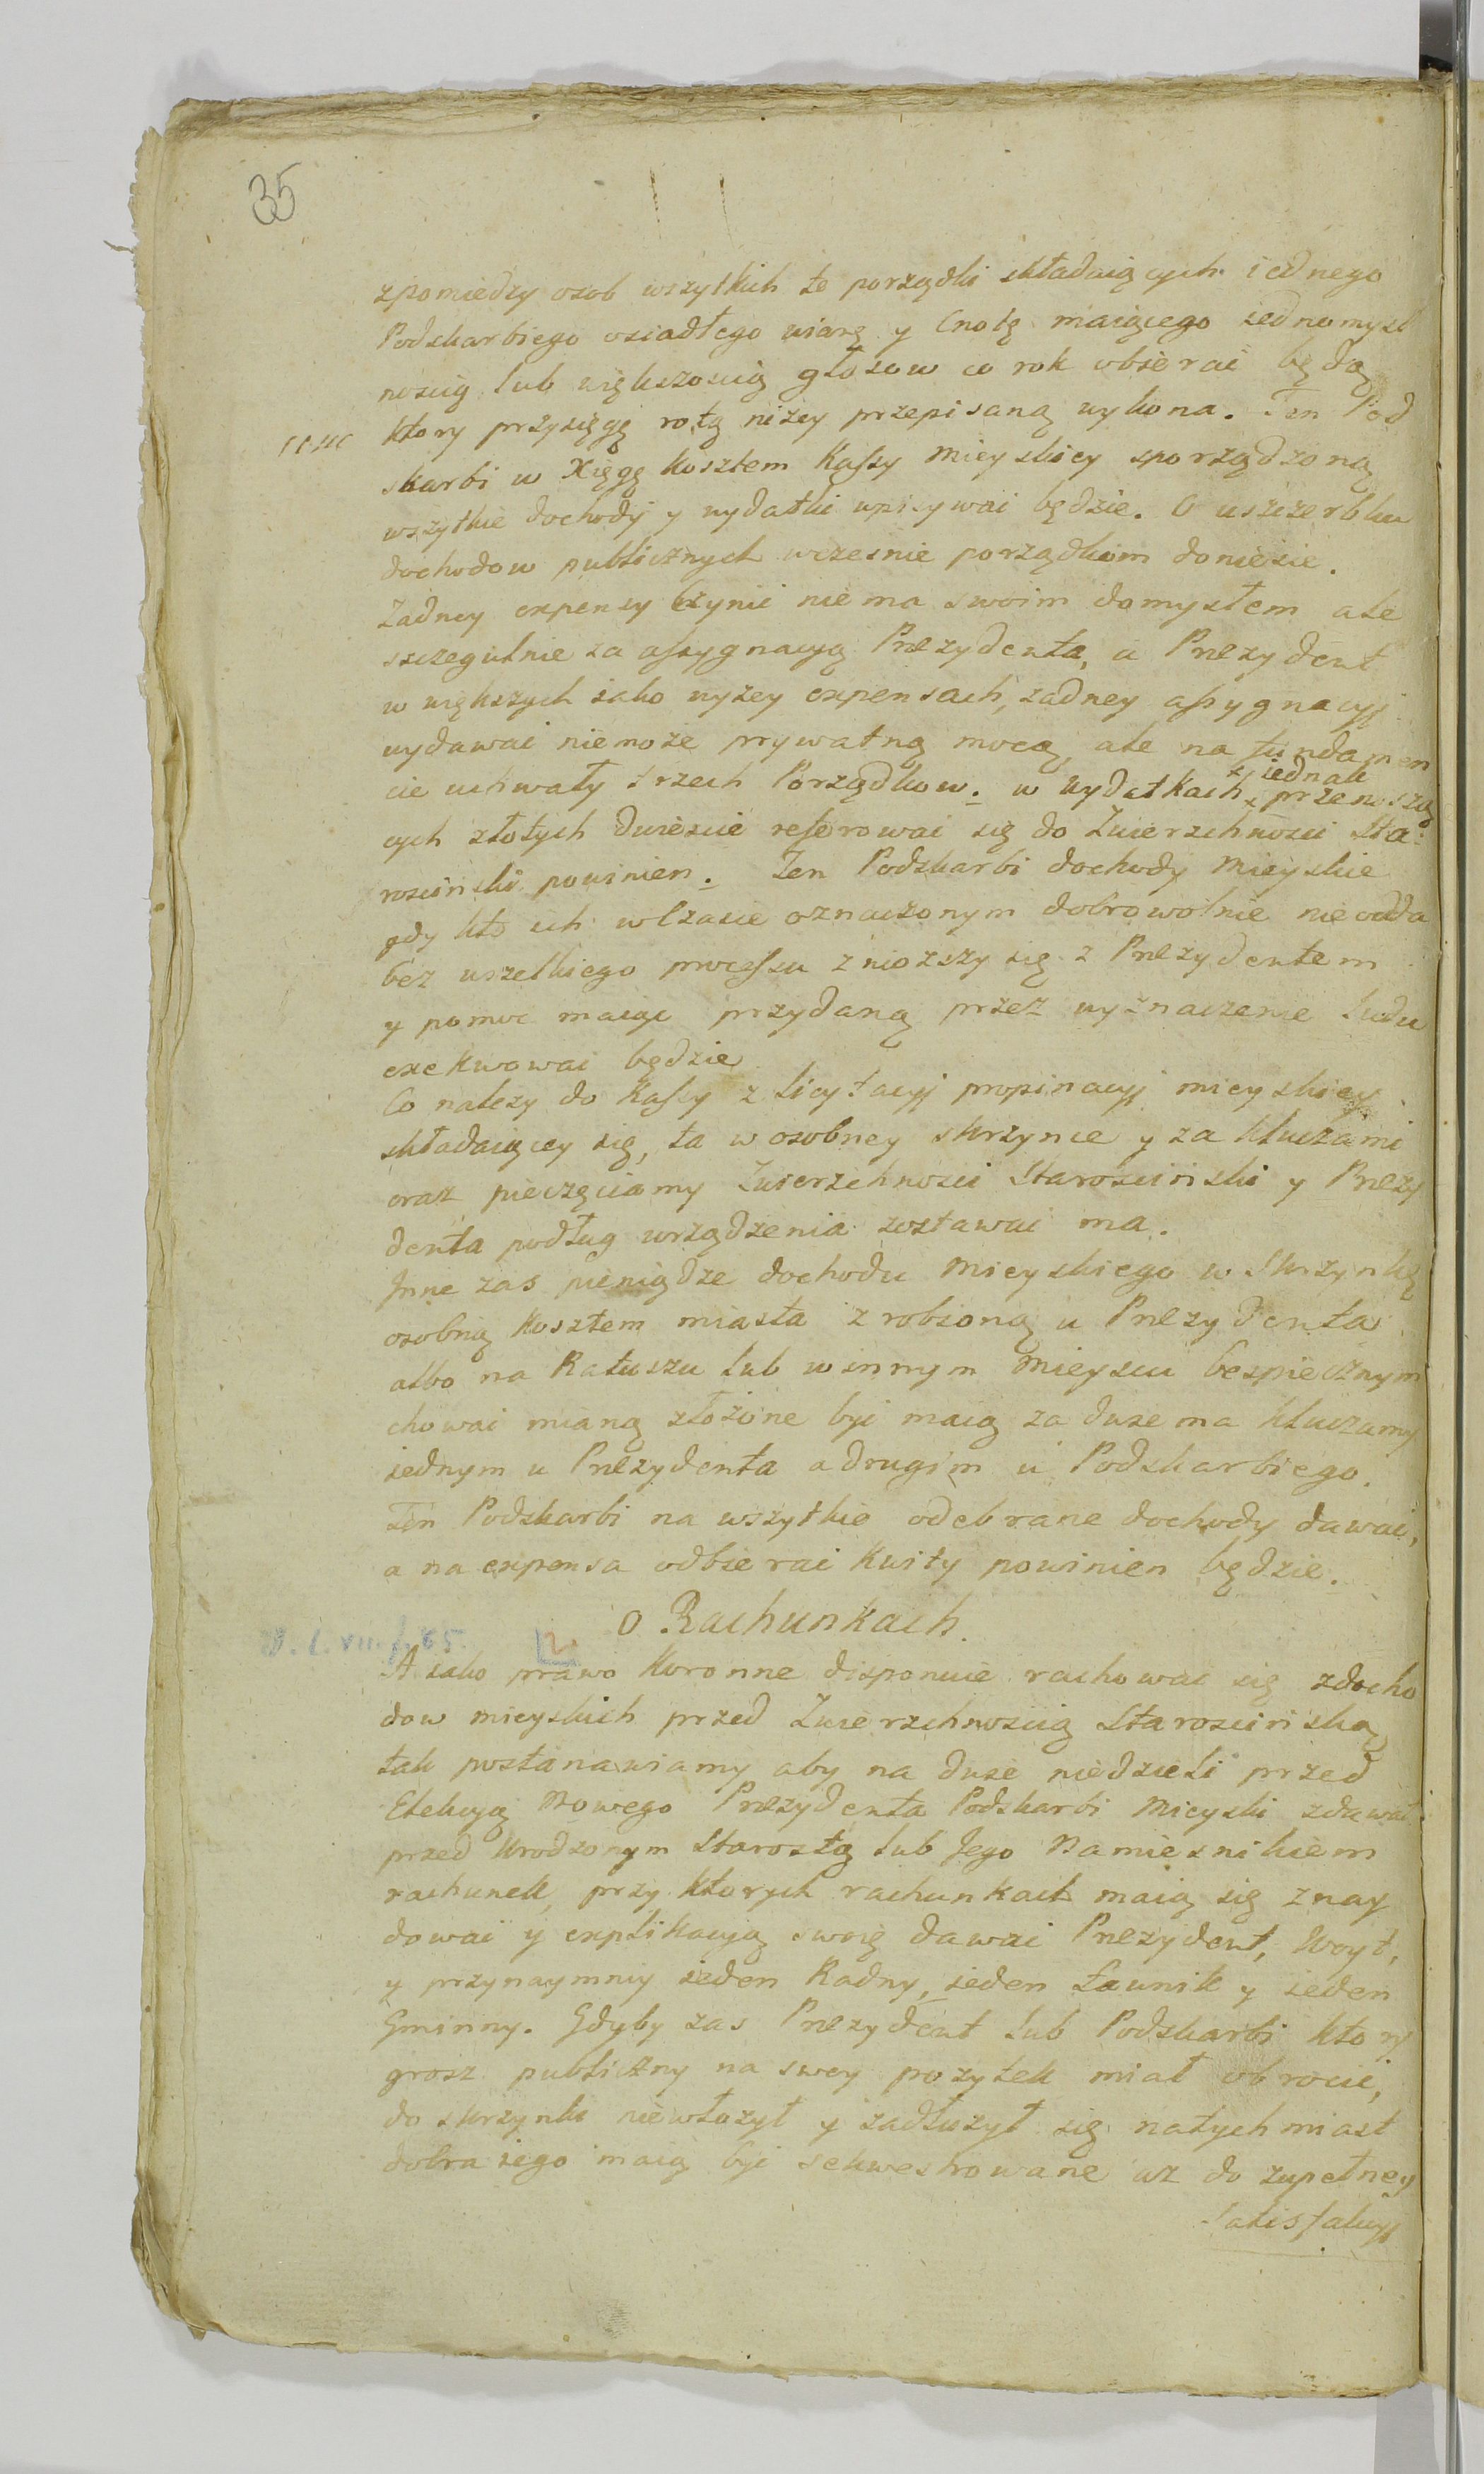 35
zpomiedzy osob wszytkich te porządki składaiących iednego
Podskarbiego osiadłego wiarę y Cnotę maiącego iednomysl
noscią lub większoscią głosow co rok obierać będą
ktory przysięgę rotą niżey przepisaną wykona. Ten Pod
skarbi w Xięgę kosztem Kassy Mieyskiey sporządzoną
wszytkie dochody y wydatki wpisywać będzie. O uszczerbku
dochodow publicznych wczesnie porządkom doniesie.
Żadney expensy czynić nie ma swoim domysłem ale
szczegulnie za assygnacyą Prezydenta, a Prezydent
w większych iako wyżey expensach, żadney assygnacyj
wydawać niemoże prywatną mocą, ale na fundamen
cie uchwały trzech Porządkow. w wydatkach iednak przenoszą
cych złotych dwiescie referować się do Zwierzchnosci Sta:
rościnski powinien. Ten Podskarbi dochody Mieyskie
gdy kto ich wczasie oznaczonym dobrowolnie nie odda
bez wszelkiego processu zniozszy się z Prezydentem
y pomoc maiąc przydaną przez wyznaczenie ludu
exekwować będzie
Co należy do Kassy z licytacyj propinacyj mieyskiey
składaiącey się, ta w osobney skrzynce y za kluczami
oraz pieczęciamy Zwierzchnosci Starościnski y Prezy
denta podług urządzenia zostawać ma.
Inne zas pieniądze dochodu Mieyskiego w Skrzynkę
osobną kosztem miasta zrobioną u Prezydenta
albo na Ratuszu lub w innym Mieyscu bespiecznym
chować mianą złożone być maią za dwiema kluczamy
iednym u Prezydenta a drugim u Podskarbiego.
Ten Podskarbi na wszytkie odebrane dochody dawać,
a na expensa odbierać kwity powinien będzie.
O Rachunkach.
A iako prawo Koronne disponuie rachować się zdocho
dow mieyskich przed Zwierzchnoscią Starościnską
tak postanawiamy aby na dwie niedzieli przed
Elekcyą Nowego Prezydenta Podskarbi Mieyski zdawał
przed Urodzonym Starostą lub Jego Namiesnikiem
rachunek, przy ktorych rachunkach maią się znay
dować y explikacyą swoię dawać Prezydent, Woyt,
y przynaymniy ieden Radny, ieden Ławnik y ieden
Gminny. Gdyby zas Prezydent lub Podskarbi ktory
grosz publiczny na swey pożytek miał obrocić,
do skrzynki niewłożył y zadłużył się natychmiast
dobra iego maią być sekwestrowane aż do zupełney
Satisfakcyj